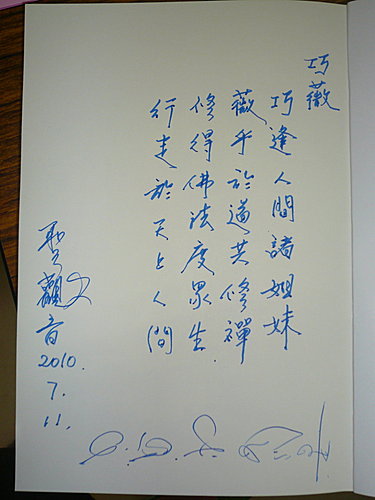 巧薇
巧逢人間諸姐妹
薇乎於道共修禪
修得佛法度眾生
行走於天上人間
聖觀音
2010.
7.
11.